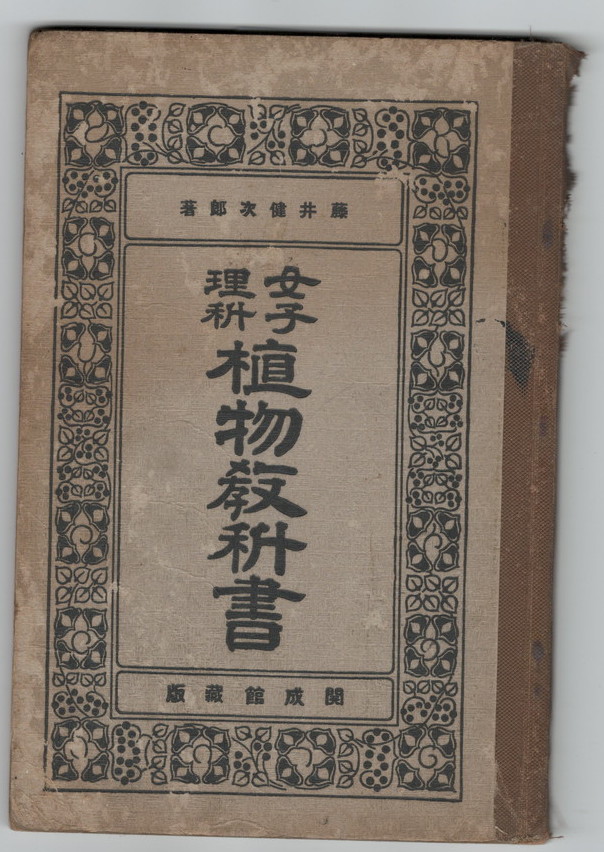 藤井健次郎著
女子
理科
植物教科書
開成館藏版